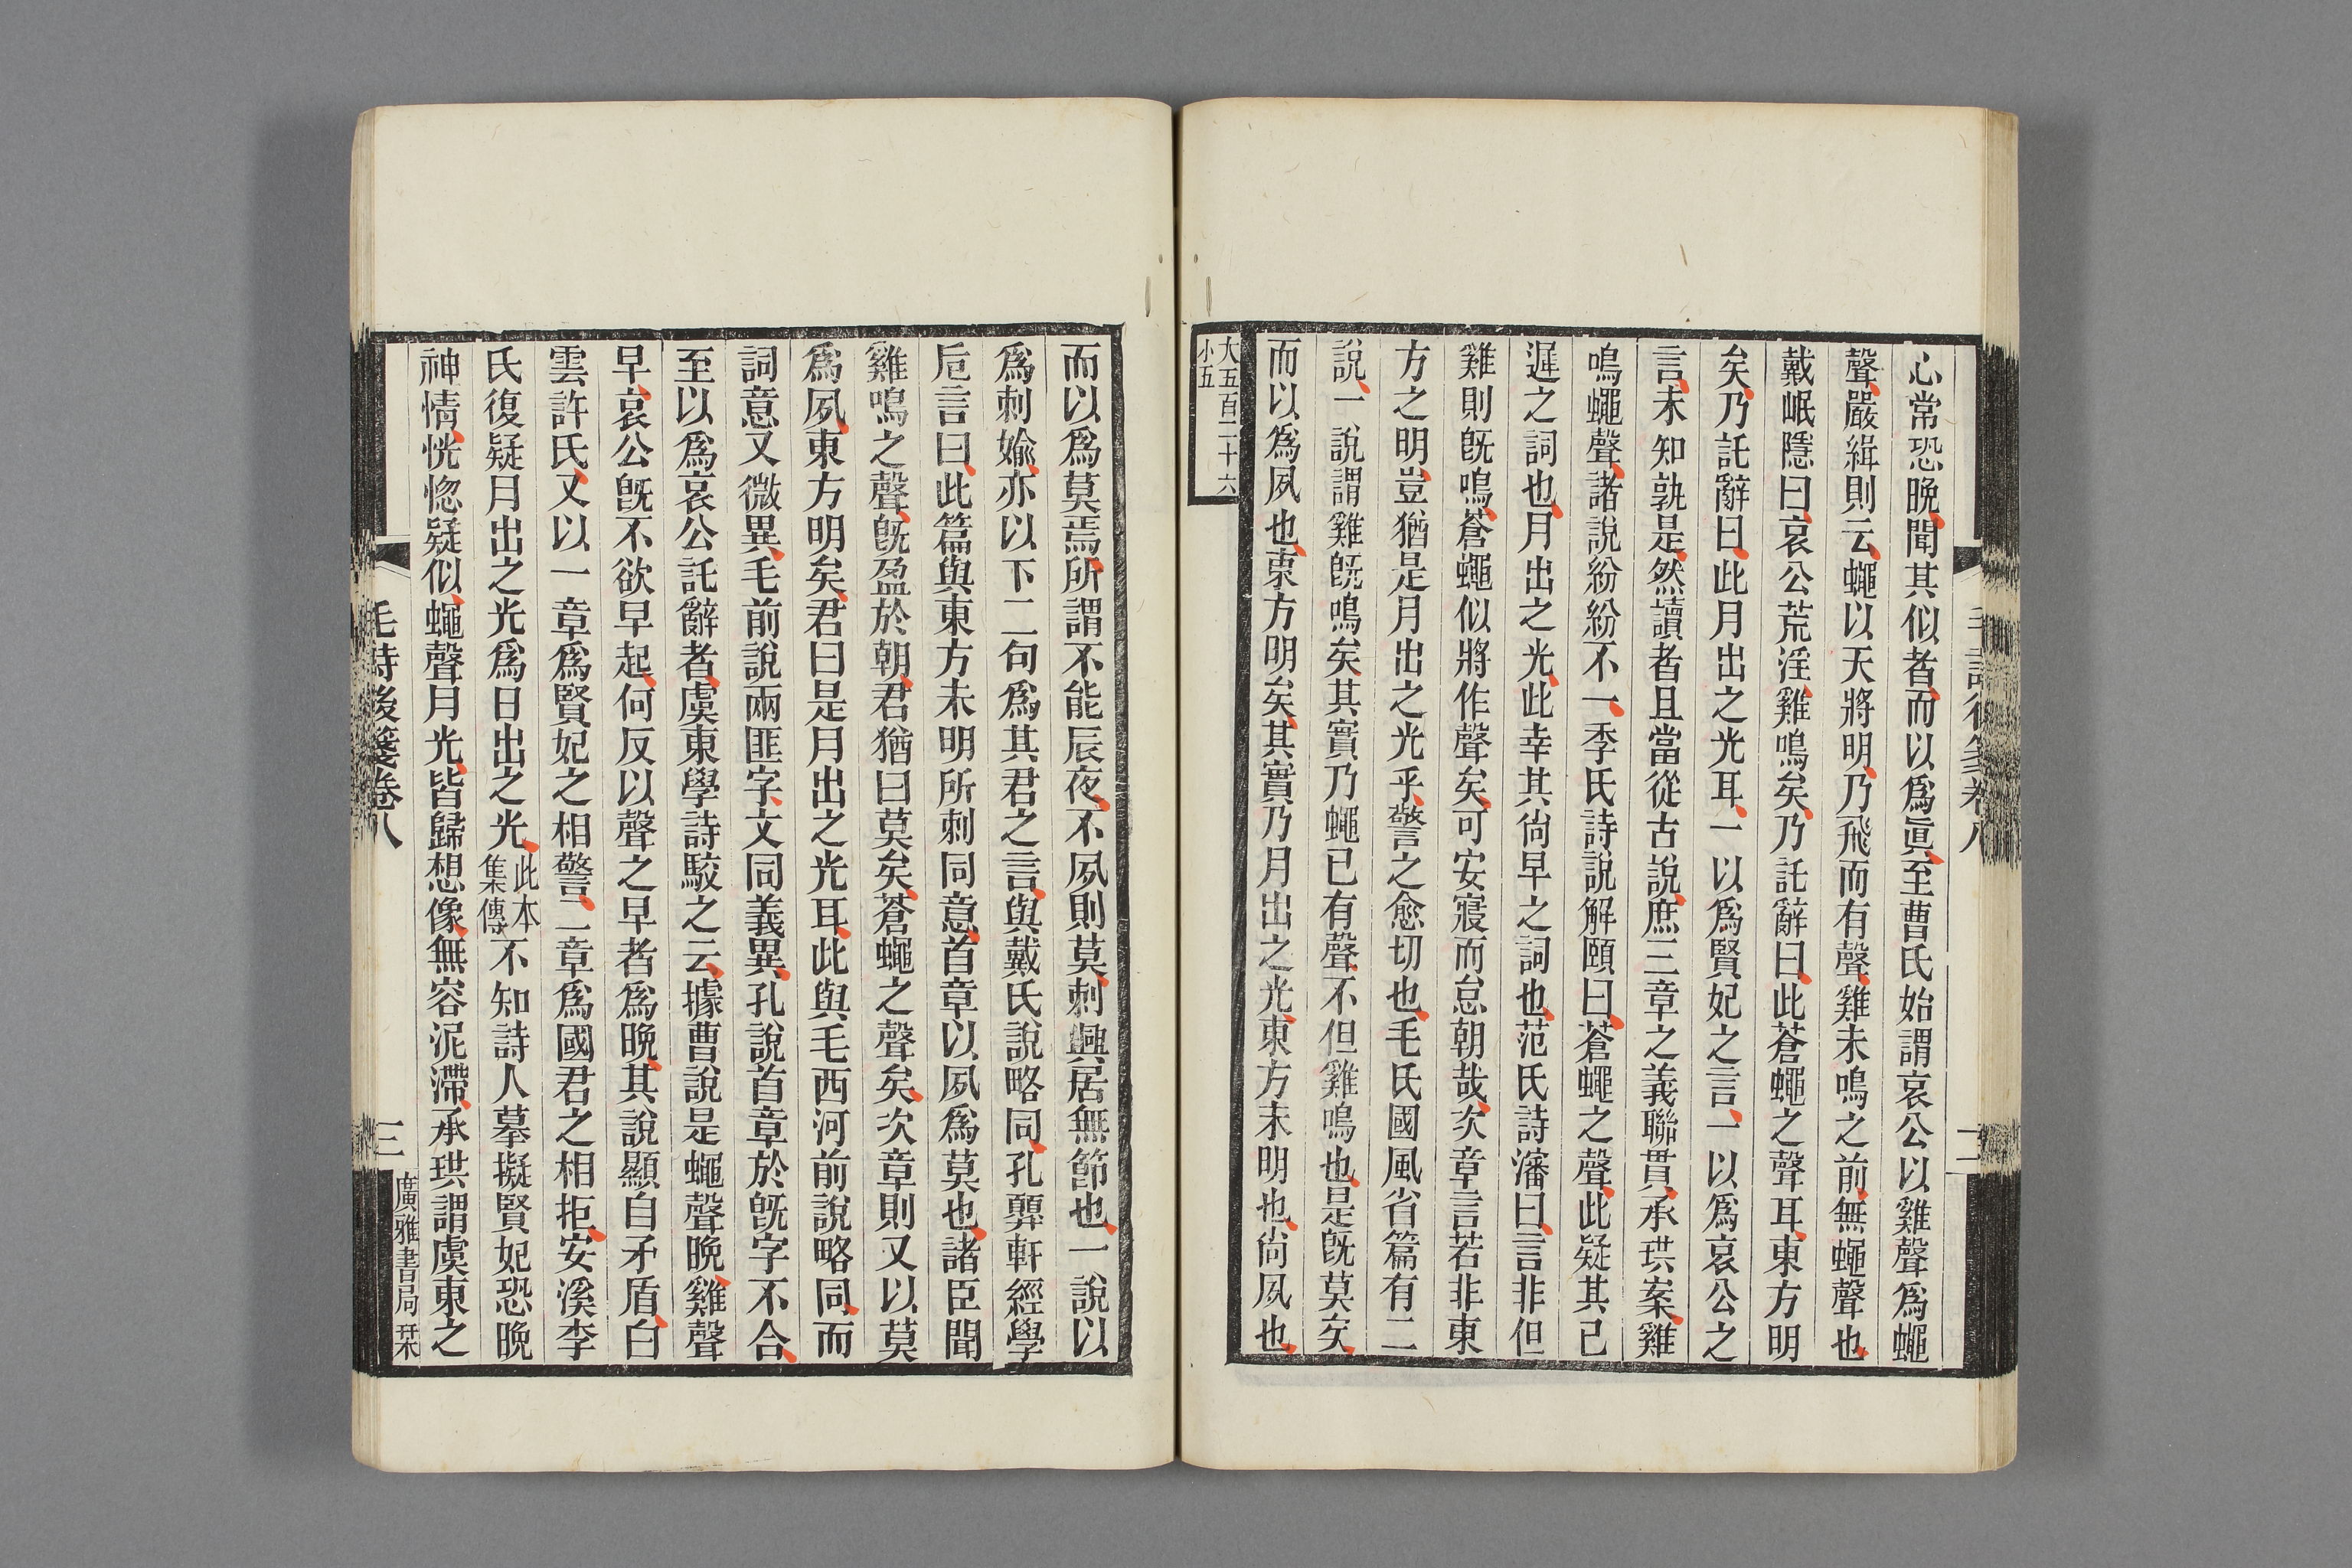 毛詩後箋卷八
二
心常恐晚聞其似者而以爲眞至曹氏始謂哀公以雞聲爲蠅
聲嚴緝則云蠅以天將明乃飛而有聲雞未鳴之前無蠅聲也
戴岷隱曰哀公荒淫雞鳴矣乃託辭曰此蒼蠅之聲耳東方明
矣乃託辭曰此月出之光耳一以爲賢妃之言一以爲哀公之
言未知孰是然讀者且當從古說庶三章之義聯貫承珙案雞
鳴蠅聲諸說紛紛不一季氏詩說解頤曰蒼蠅之聲此疑其已
遲之詞也月出之光此幸其尙早之詞也范氏詩瀋曰言非但
雞則旣鳴蒼蠅似將作聲矣可安寢而怠朝哉次章言若非東
方之明豈猶是月出之光乎警之愈切也毛氏國風省篇有二
說一說謂雞旣鳴矣其實乃蠅已有聲不但雞鳴也是旣莫矣
而以爲夙也東方明矣其實乃月出之光東方未明也尙夙也
大五百二十六
小五
而以爲莫焉所謂不能辰夜不夙則莫刺興居無節也一說以
爲刺媮亦以下二句爲其君之言與戴氏說略同孔顨軒經學
卮言曰此篇與東方未明所刺同意首章以夙爲莫也諸臣聞
雞鳴之聲旣盈於朝君猶曰莫矣蒼蠅之聲矣次章則又以莫
爲夙東方明矣君曰是月出之光耳此與毛西河前說略同而
詞意又微異毛前說兩匪字文同義異孔說首章於旣字不合
至以爲哀公託辭者虞東學詩駮之云據曹說是蠅聲晚雞聲
早哀公旣不欲早起何反以聲之早者爲晚其說顯自矛盾白
雲許氏又以一章爲賢妃之相警二章爲國君之相拒安溪李
氏復疑月出之光爲日出之光此本集傳不知詩人摹擬賢妃恐晚
神情恍惚疑似蠅聲月光皆歸想像無容泥滯承珙謂虞東之
毛詩後箋卷八
三
廣雅書局栞